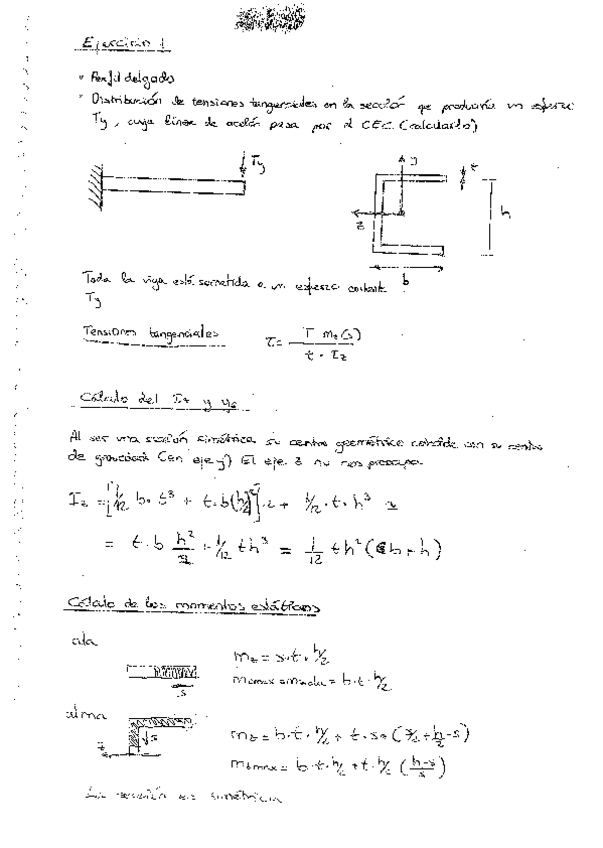 Ejercicio 1
• Perfil delgado
• Distribución de tensiones tangenciales en la sección que produciría un esfuerzo
Ty, cuya línea de acción pasa por el CEC (calcularlo)
Ty
y
t
z
h
b
Toda la viga está sometida a un esfuerzo cortante
Ty
Tensiones tangenciales
τ = T mz(s) / t · Iz
Cálculo del Iz y yG
Al ser una sección simétrica su centro geométrico coincide con su centro
de gravedad (en eje y) El eje z no nos preocupa.
Iz = [1/12 b · t³ + t · b (h/2)²] · 2 + 1/12 · t · h³ ≈
= t · b h²/2 + 1/12 th³ = 1/12 th² (6b + h)
Cálculo de los momentos estáticos
ala
mz = s · t · h/2
= b · t · h/2
s
alma
s
z
mz = b · t · h/2 + t · s
= b · t · h/2 + t · h/2
La sección es simétrica